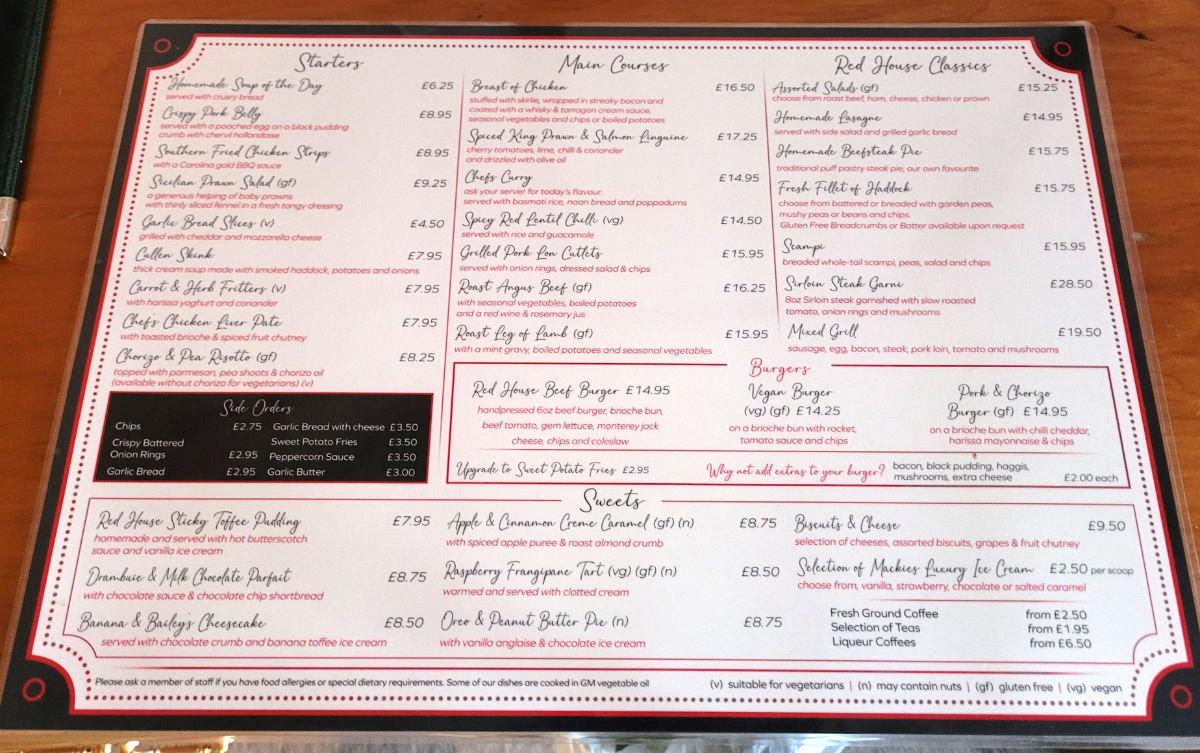 Starters
Homemade Soup of the Day £6.25
served with crusty bread
Crispy Pork Belly £8.95
served with a poached egg on a black pudding
crumb with chervil hollandaise
Southern Fried Chicken Strips £8.95
with a Carolina gold BBQ sauce
Sicilian Prawn Salad (gf) £9.25
a generous helping of baby prawns
with thinly sliced fennel in a fresh tangy dressing
Garlic Bread Slices (v) £4.50
grilled with cheddar and mozzarella cheese
Cullen Skink £7.95
thick cream soup made with smoked haddock, potatoes and onions
Carrot & Herb Fritters (v) £7.95
with harissa yoghurt and coriander
Chef's Chicken Liver Pate £7.95
with toasted brioche & spiced fruit chutney
Chorizo & Pea Risotto (gf) £8.25
topped with parmesan, pea shoots & chorizo oil
(available without chorizo for vegetarians) (v)
Side Orders
Chips £2.75
Crispy Battered
Onion Rings £2.95
Garlic Bread £2.95
Garlic Bread with cheese £3.50
Sweet Potato Fries £3.50
Peppercorn Sauce £3.50
Garlic Butter £3.00
Main Courses
Breast of Chicken £16.50
stuffed with skirlie, wrapped in streaky bacon and
coated with a whisky & tarragon cream sauce,
seasonal vegetables and chips or boiled potatoes
Spiced King Prawn & Salmon Linguine £17.25
cherry tomatoes, lime, chilli & coriander
and drizzled with olive oil
Chefs Curry £14.95
ask your server for today's flavour.
served with basmati rice, naan bread and poppadums
Spicy Red Lentil Chilli (vg) £14.50
served with rice and guacamole
Grilled Pork Lon Cutlets £15.95
served with onion rings, dressed salad & chips
Roast Angus Beef (gf) £16.25
with seasonal vegetables, boiled potatoes
and a red wine & rosemary jus
Roast Leg of Lamb (gf) £15.95
with a mint gravy, boiled potatoes and seasonal vegetables
Red House Classics
Assorted Salads (gf) £15.25
choose from roast beef, ham, cheese, chicken or prawn
Homemade Lasagne £14.95
served with side salad and grilled garlic bread
Homemade Beefsteak Pie £15.75
traditional puff pastry steak pie, our own favourite
Fresh Fillet of Haddock £15.75
choose from battered or breaded with garden peas,
mushy peas or beans and chips.
Gluten Free Breadcrumbs or Batter available upon request
Scampi £15.95
breaded whole-tail scampi, peas, salad and chips
Sirloin Steak Garni £28.50
8oz Sirloin steak garnished with slow roasted
tomato, onion rings and mushrooms
Mixed Grill £19.50
sausage, egg, bacon, steak, pork loin, tomato and mushrooms
Burgers
Red House Beef Burger £14.95
handpressed 6oz beef burger, brioche bun,
beef tomato, gem lettuce, monterey jack
cheese, chips and coleslaw
Vegan Burger
(vg) (gf) £14.25
on a brioche bun with rocket,
tomato sauce and chips
Pork & Chorizo
Burger (gf) £14.95
on a brioche bun with chilli cheddar,
harissa mayonnaise & chips
Upgrade to Sweet Potato Fries £2.95
Why not add extras to your burger?
bacon, black pudding, haggis,
mushrooms, extra cheese £2.00 each
Sweets
Red House Sticky Toffee Pudding £7.95
homemade and served with hot butterscotch
sauce and vanilla ice cream
Drambuie & Milk Chocolate Parfait £8.75
with chocolate sauce & chocolate chip shortbread
Banana & Bailey's Cheesecake £8.50
served with chocolate crumb and banana toffee ice cream
Apple & Cinnamon Creme Caramel (gf) (n) £8.75
with spiced apple puree & roast almond crumb
Raspberry Frangipane Tart (vg) (gf) (n) £8.50
warmed and served with clotted cream
Oreo & Peanut Butter Pie (n) £8.75
with vanilla anglaise & chocolate ice cream
Biscuits & Cheese £9.50
selection of cheeses, assorted biscuits, grapes & fruit chutney
Selection of Mackies Luxury Ice Cream £2.50 per scoop
choose from, vanilla, strawberry, chocolate or salted caramel
Fresh Ground Coffee from £2.50
Selection of Teas from £1.95
Liqueur Coffees from £6.50
Please ask a member of staff if you have food allergies or special dietary requirements. Some of our dishes are cooked in GM vegetable oil
(v) suitable for vegetarians | (n) may contain nuts | (gf) gluten free | (vg) vegan